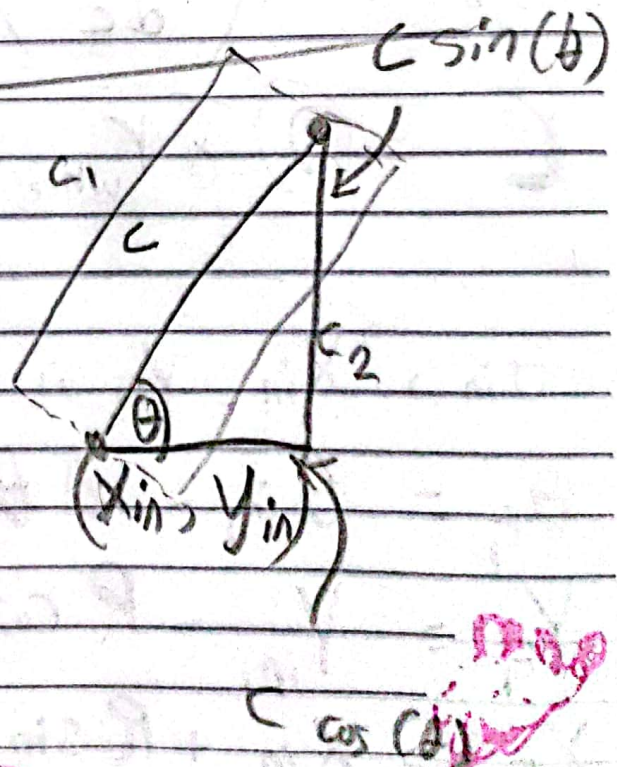 C sin(θ)
C₁
C
C₂
θ
(Xin, Yin)
C cos(θ)